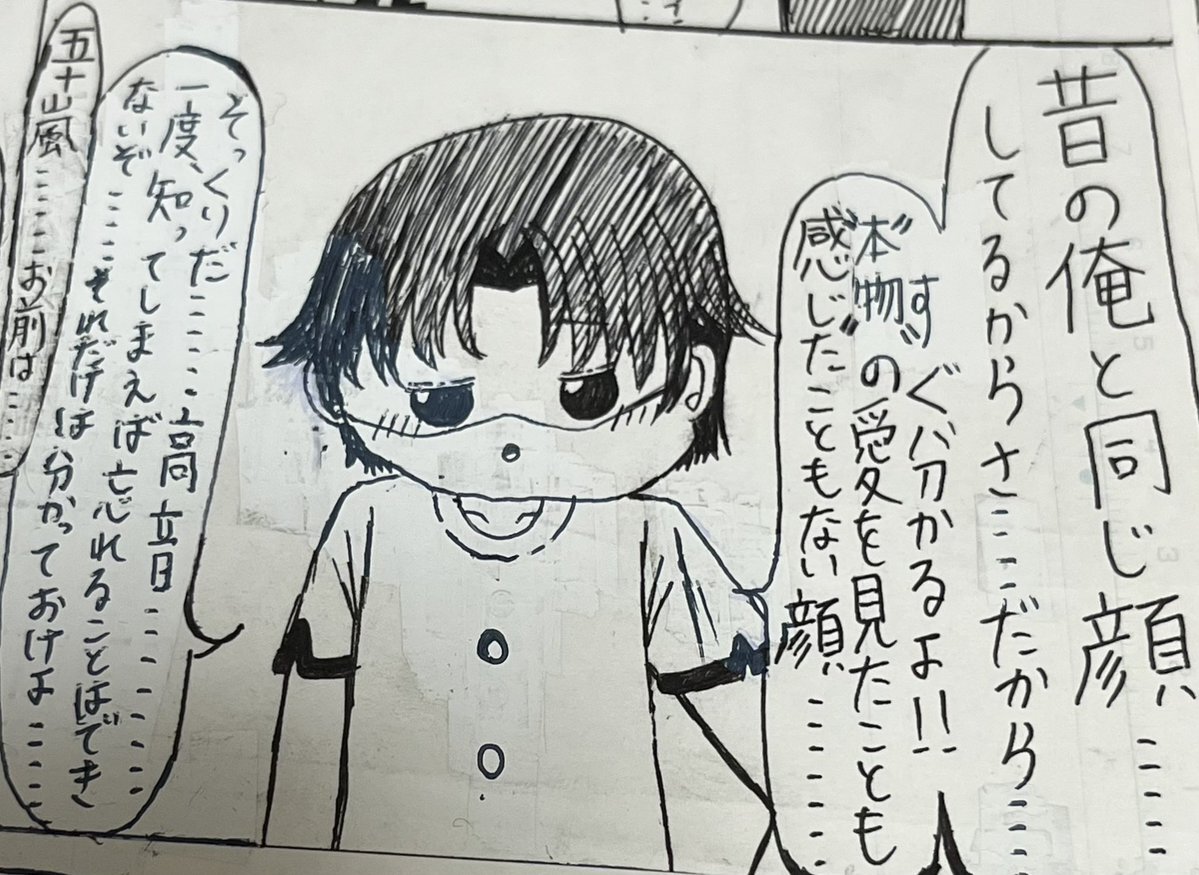 昔の俺と同じ顔……
してるからさ……だから……
すぐ分かるよ!!
"本物"の愛を見たことも
感じたこともない顔……
そっくりだ……高音……
一度、知ってしまえば忘れることはでき
ないぞ……それだけは分かっておけよ……
五十嵐……お前は……